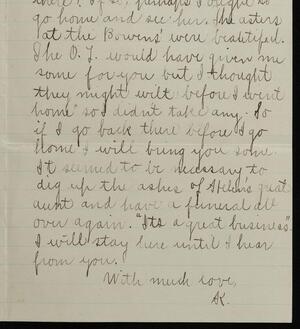 there? If so, perhaps I ought to
go home and see her. The asters
at the Bowens' were beautiful.
The O. J. would have given me
some for you but I thought
they might wilt before I went
home so I didn't take any. So
if I go back there before I go
home I will bring you some.
It seemed to be necessary to
dig up the ashes of great
aunt and have a funeral all
over again. "Its a great business".
I will stay here until I hear
from you.
With much love,
AK.